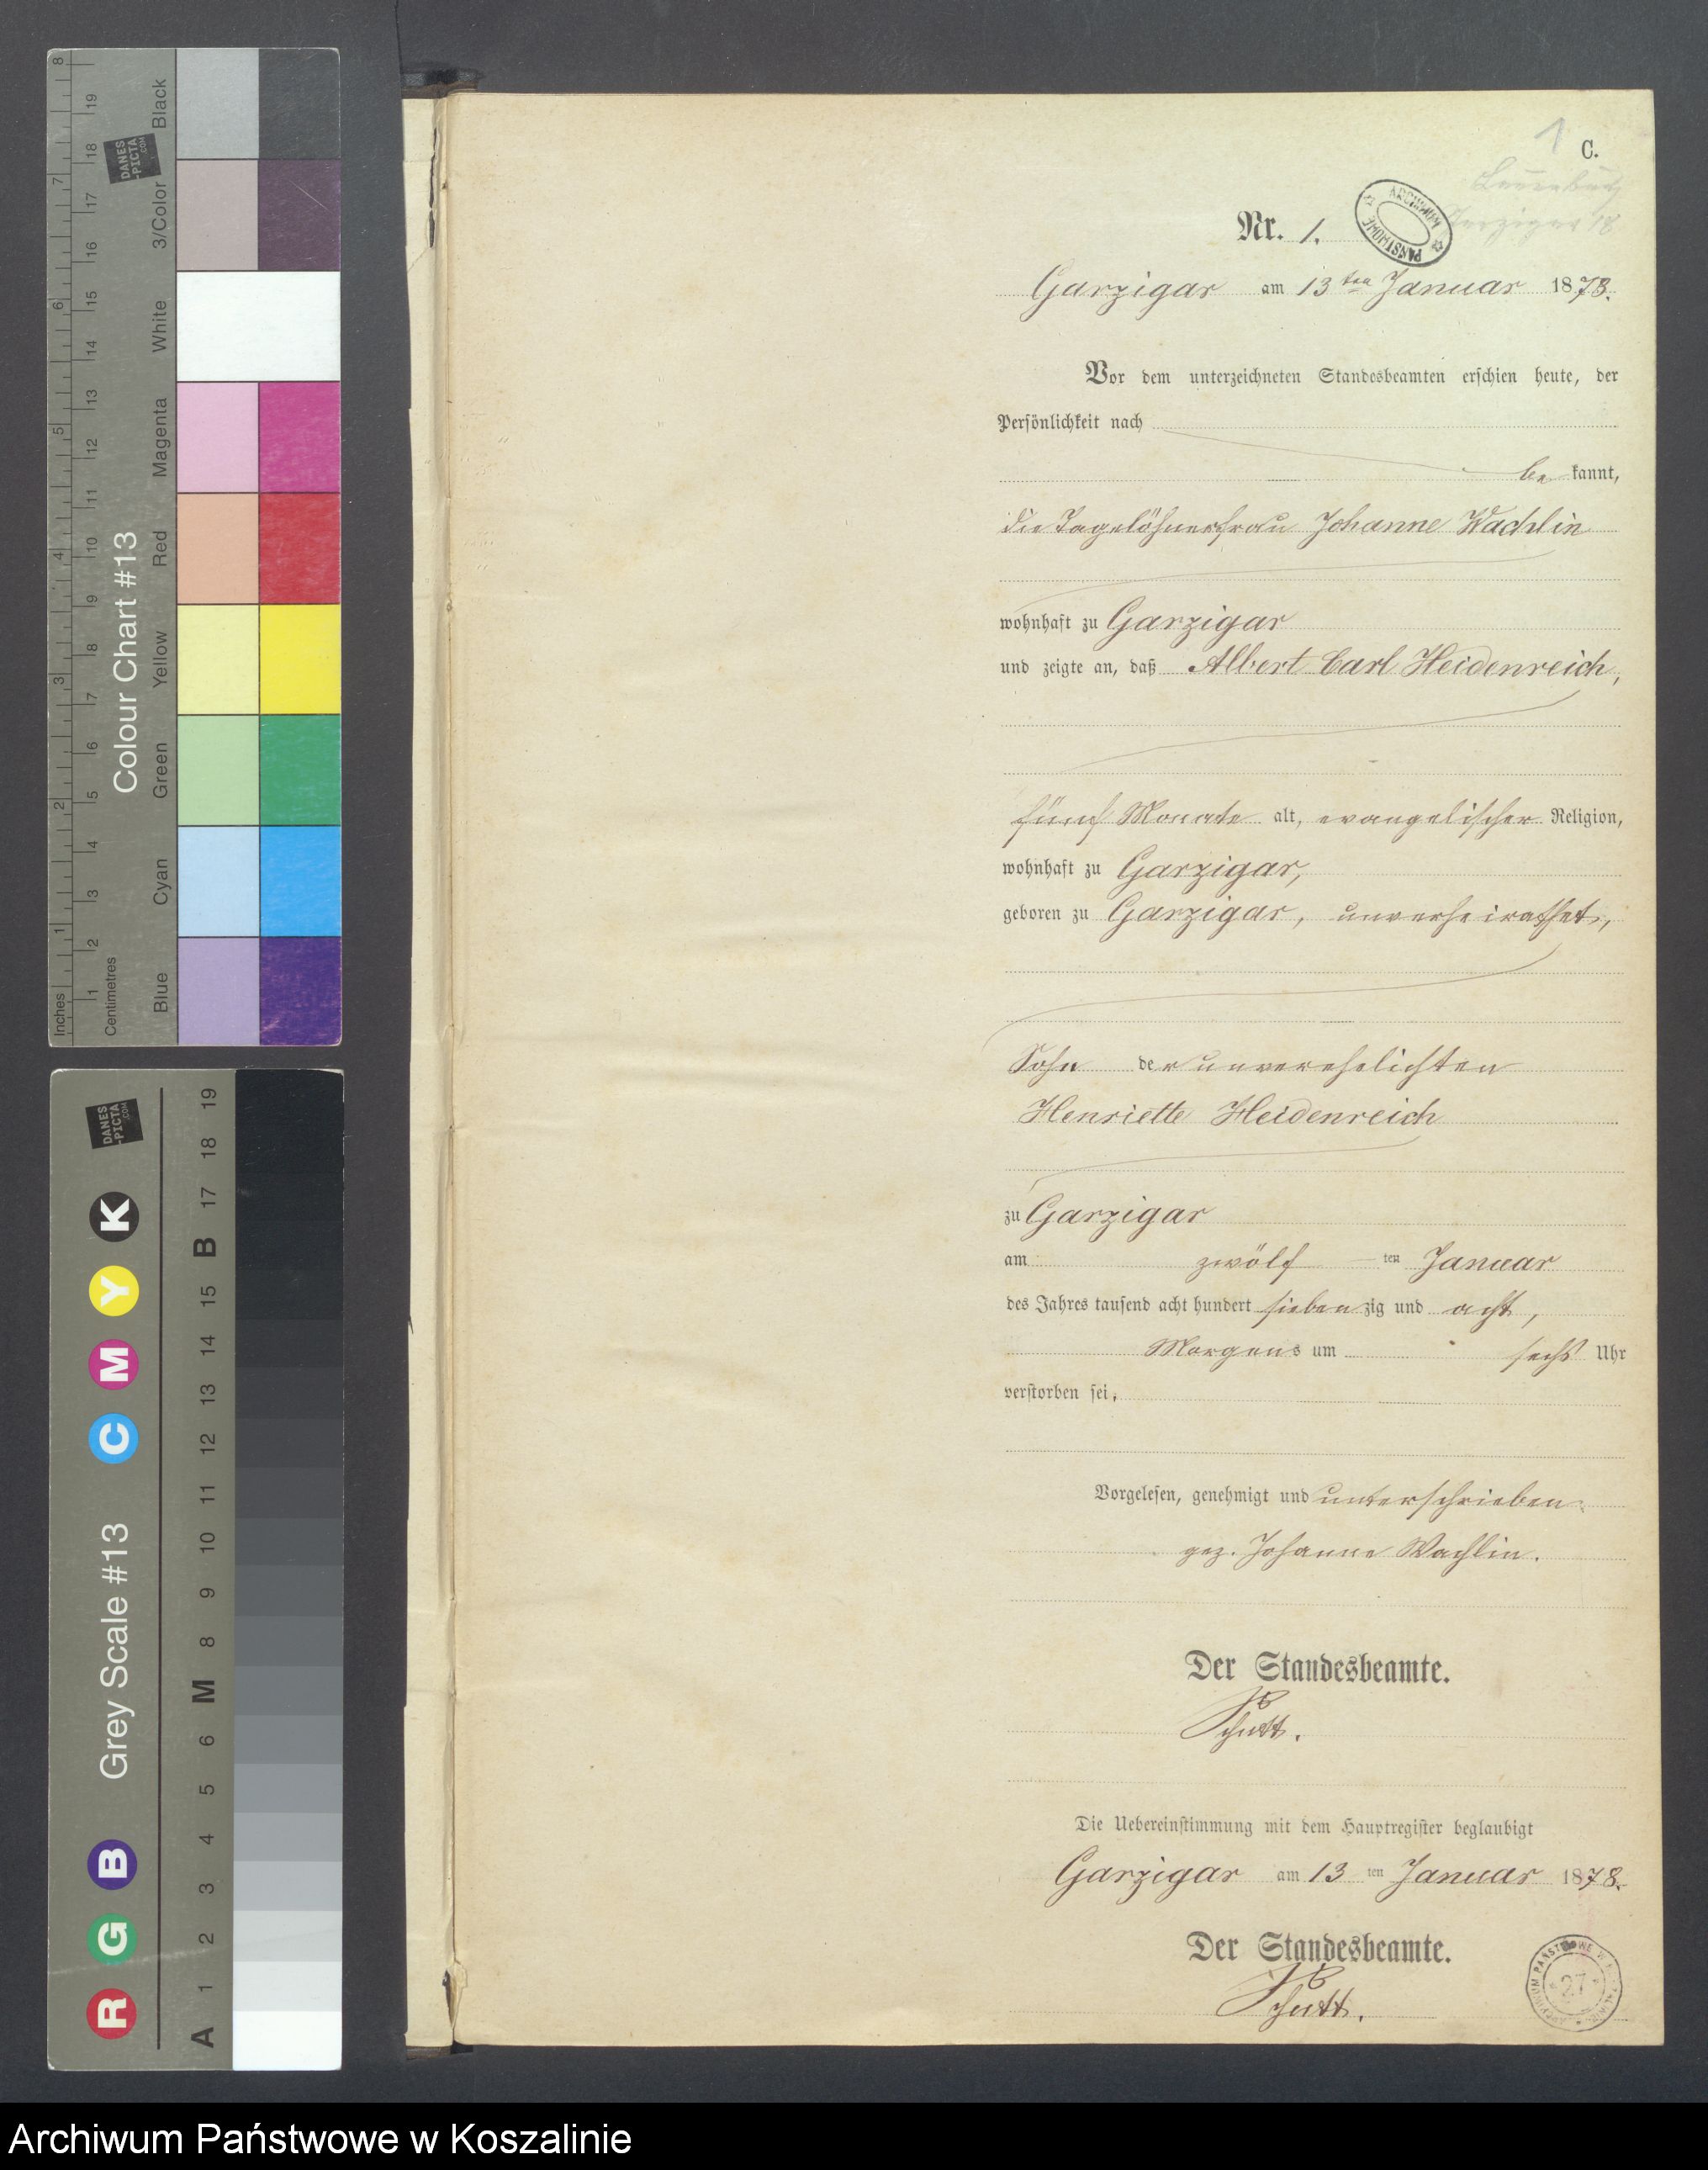 1
C.
Nr. 1.
ARCHIWUM PAŃSTWOWE
Garzigar am 13ten Januar 1878.
Vor dem unterzeichneten Standesbeamten erschien heute, der
Persönlichkeit nach
be kannt,
die Tagelöhnerfrau Johanne Wachlin
wohnhaft zu Garzigar
und zeigte an, daß Albert Carl Heidenreich,
fünf Monate alt, evangelischer Religion,
wohnhaft zu Garzigar,
geboren zu Garzigar, unverheirathet,
Sohn der unverehelichten
Henriette Heidenreich
zu Garzigar
am zwölf ten Januar
des Jahres tausend acht hundert sieben zig und acht,
Morgens um sechs Uhr
verstorben sei.
Vorgelesen, genehmigt und unterschrieben.
gez. Johanne Wachlin.
Der Standesbeamte.
Schutt.
Die Uebereinstimmung mit dem Hauptregister beglaubigt
Garzigar am 13 ten Januar 1878.
Der Standesbeamte.
Schutt.
27
Inches 1 2 3 4 5 6 7 8
Centimetres 1 2 3 4 5 6 7 8 9 10 11 12 13 14 15 16 17 18 19
Colour Chart #13
Blue Cyan Green Yellow Red Magenta White 3/Color Black
DANES-PICTA.COM
Grey Scale #13
R G B C M Y K
A 1 2 3 4 5 6 M 8 9 10 11 12 13 14 15 B 17 18 19
DANES-PICTA.COM
Archiwum Państwowe w Koszalinie